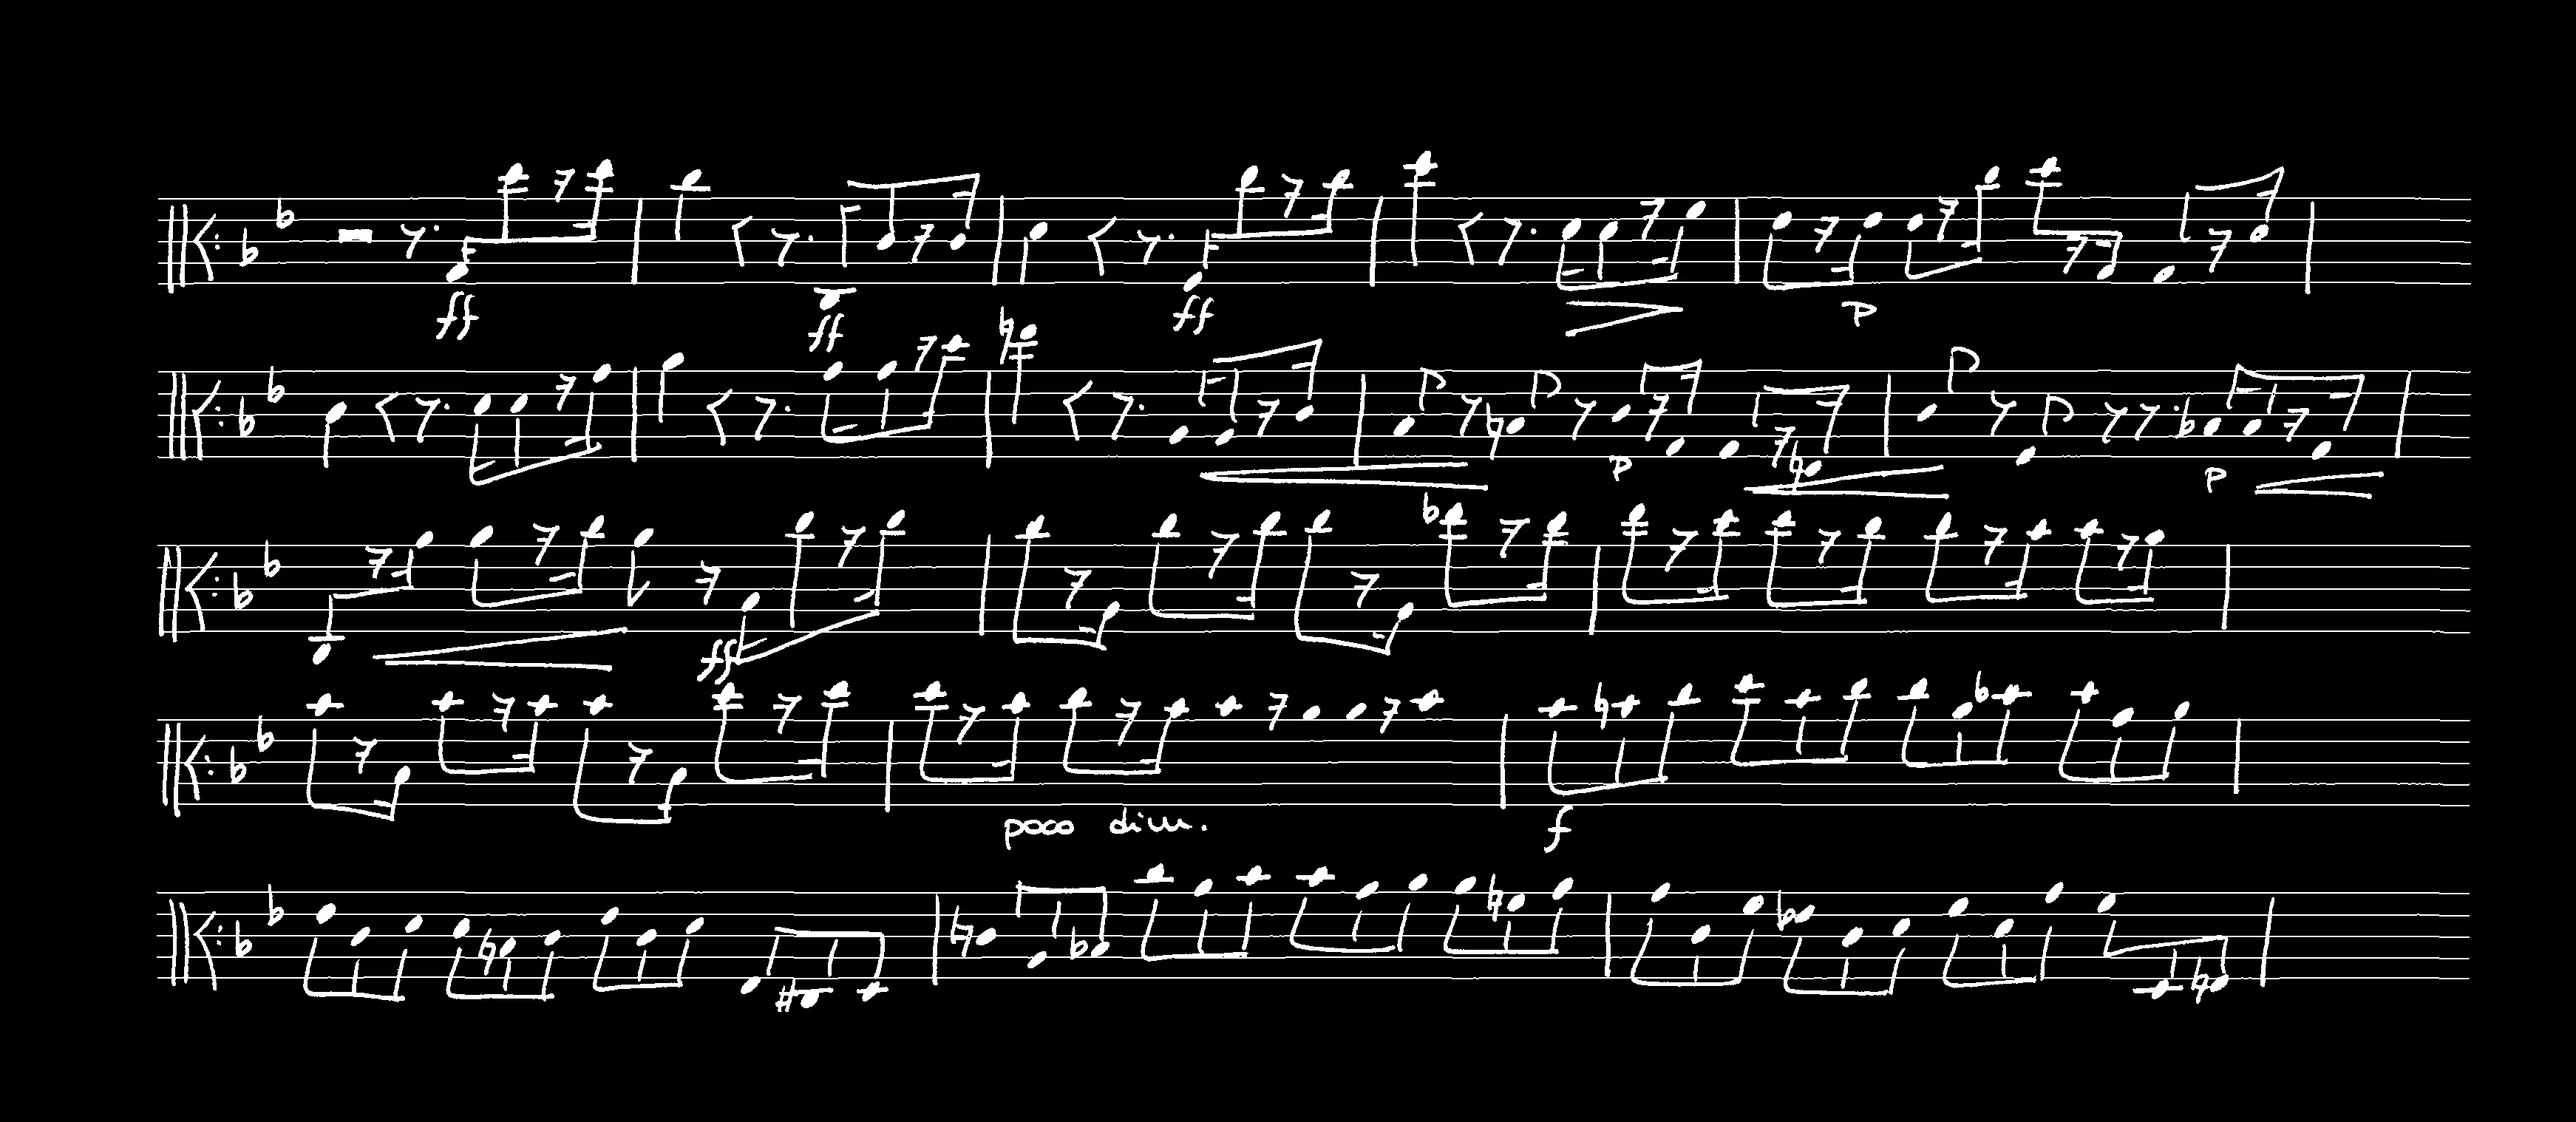 ff ff ff
p
p p
ff
poco dim. f